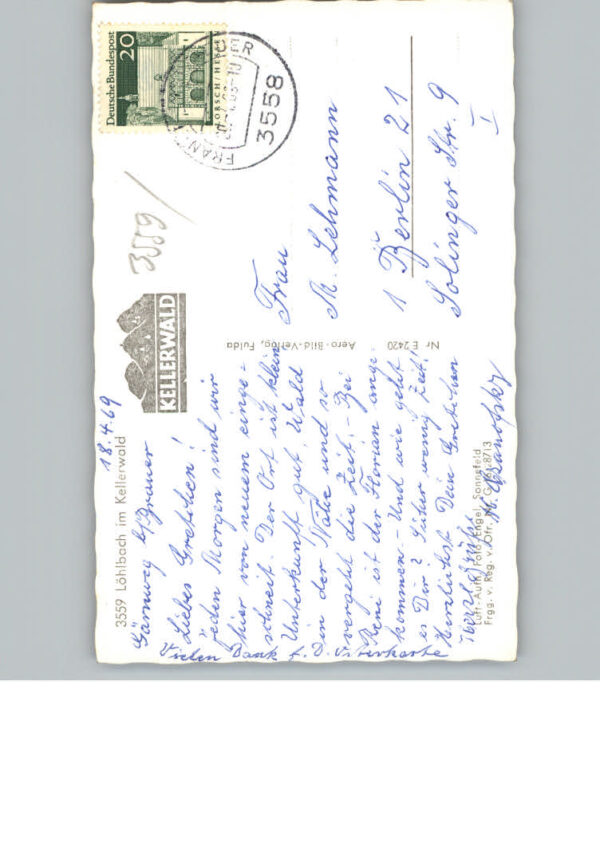 3559 Löhlbach im Kellerwald
18.4.69
Gärnweg b/Brauer
Liebes Gretchen!
Jeden Morgen sind wir
hier von neuem einge-
schneit. Der Ort ist klein
Unterkunft gut. Wald
in der Nähe und so
vergeht die Zeit. - Bei
Reni ist der Florian ange
kommen - Und wie geht
es Dir? Sicher wenig Zeit!
Herzlichst Dein Gretchen
Vielen Dank f. D. Osterkarte
KELLERWALD
3559/
Deutsche Bundespost
20
LORSCH/HESSEN
3558
FRAN
Aero-Bild-Verlag, Fulda
Nr. E 2420
Luft-Aufn. Foto Engel, Sonnefeld
Frgg. v. Reg. v. Ofr. Nr. G 8713
Frau
M. Lehmann
1 Berlin 21
Solinger Str. 9
I